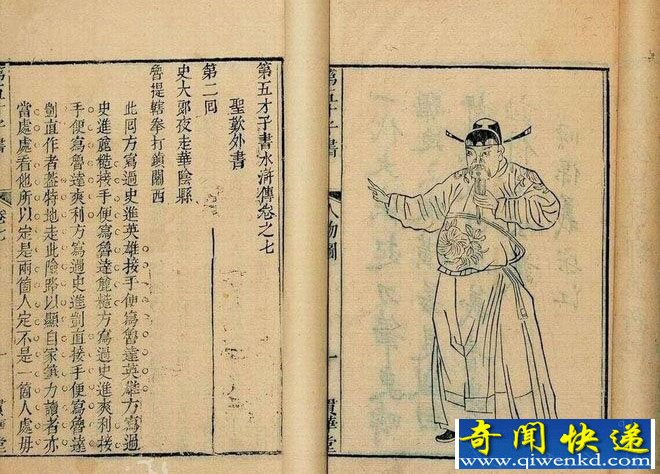 第五才子書
人物圖
一
貫華堂
第五才子書水滸傳卷之七
聖歎外書
第二囘
史大郎夜走華陰縣
魯提轄拳打鎮關西
此囘方寫過史進英雄接手便寫魯達英雄方寫過
史進麄糙接手便寫魯達麄糙方寫過史進爽利接
手便寫魯達爽利方寫過史進剴直接手便寫魯達
剴直作者葢特地走此險路以顯自家筆力讀者亦
當處處看他所以定是兩箇人定不是一箇人處毋
第五才子書
卷七
一
貫華堂
奇闻快递
www.qiwenkd.com